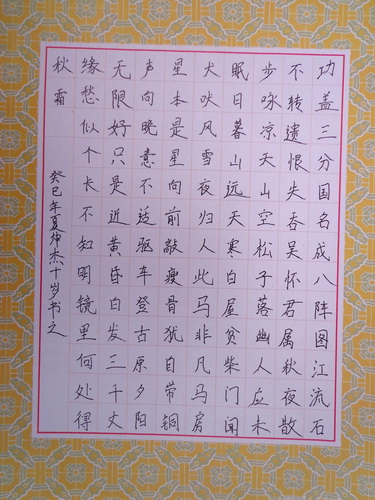 功盖三分国名成八阵图江流石
不转遗恨失吞吴怀君属秋夜散
步咏凉天山空松子落幽人应未
眠日暮山远天寒白屋贫柴门闻
犬吠风雪夜归人此马非凡马房
星本是星向前敲瘦骨犹自带铜
声向晚意不适驱车登古原夕阳
无限好只是近黄昏白发三千丈
缘愁似个长不知明镜里何处得
秋霜
癸巳年夏坤杰十岁书之